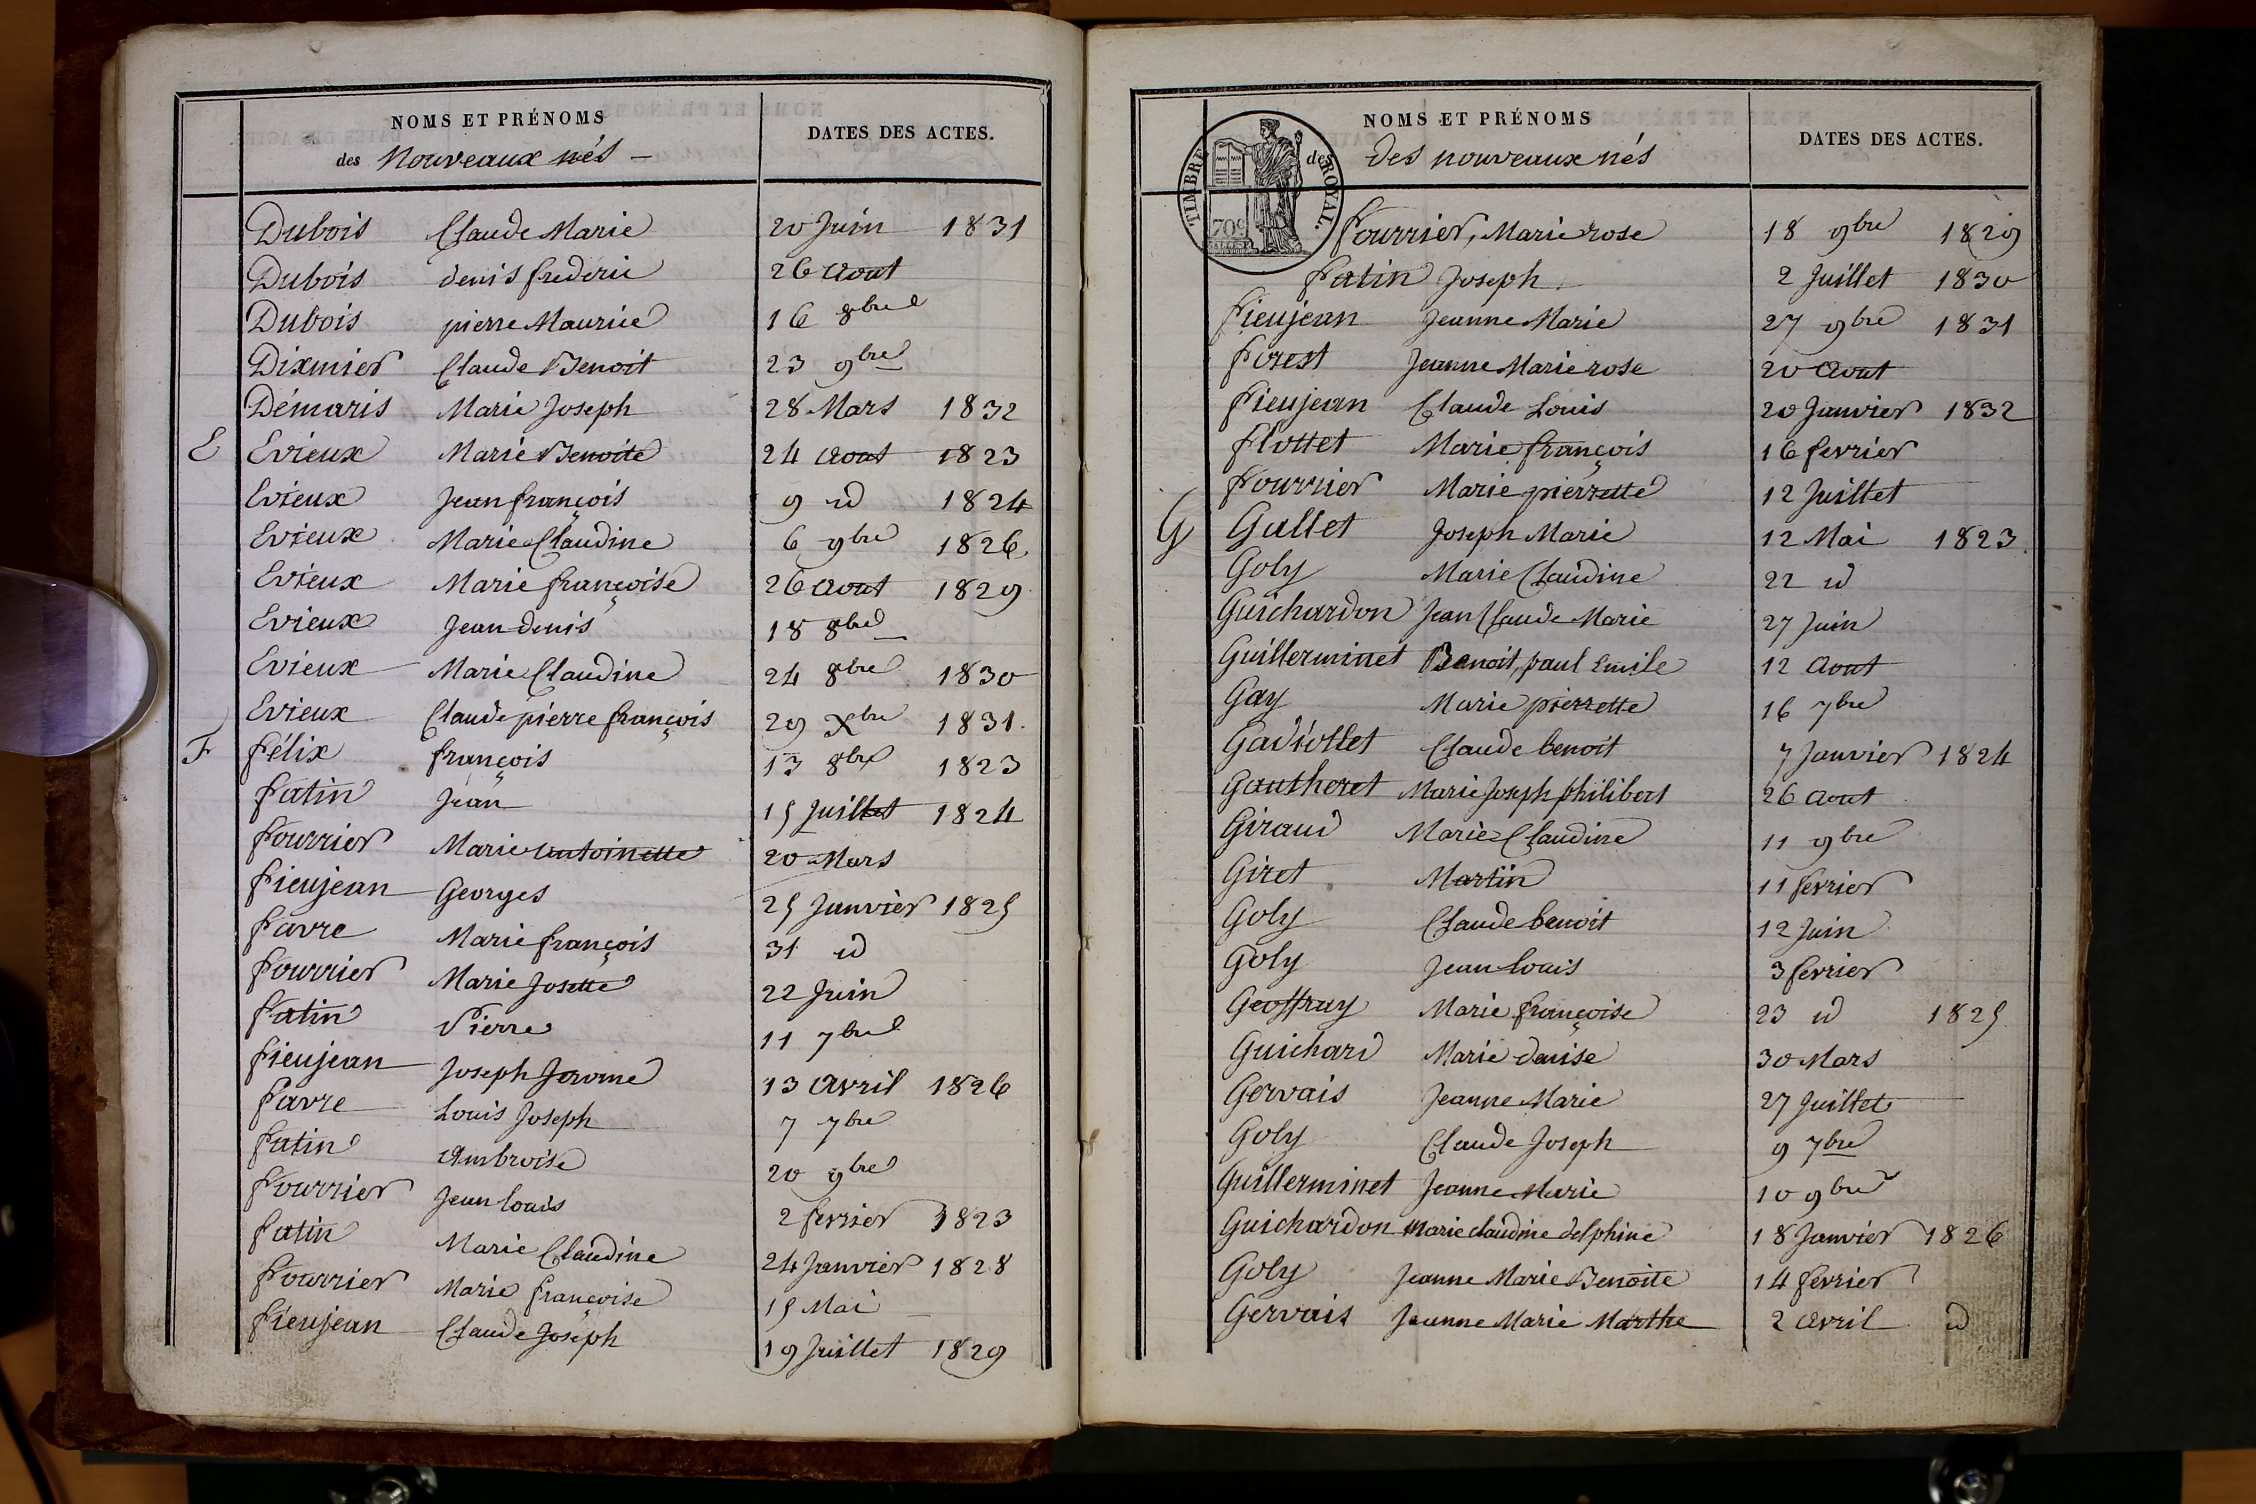 NOMS ET PRÉNOMS
des Nouveaux nés –
DATES DES ACTES.
Dubois Claude Marie 20 Juin 1831
Dubois denis frederic 26 Aout
Dubois pierre Maurice 16 8bre
Dixmier Claude Benoit 23 9bre
Démaris Marie Joseph 28 Mars 1832
E Evieux Marie Benoite 24 Aout 1823
Evieux Jean françois 9 id 1824
Evieux Marie Claudine 6 9bre 1826
Evieux Marie françoise 26 Aout 1829
Evieux Jean denis 18 8bre
Evieux Marie Claudine 24 8bre 1830
Evieux Claude pierre françois 29 Xbre 1831
F Félix françois 13 8bre 1823
fatin Jean 15 Juillet 1824
fourrier Marie Antoinette 20 Mars
fieujean Georges 25 Janvier 1825
favre Marie françois 31 id
fourrier Marie Josette 22 Juin
fatin Pierre 11 7bre
fieujean Joseph Jerome 13 Avril 1826
favre Louis Joseph 7 7bre
fatin Ambroise 20 9bre
fourrier Jean Louis 2 fevrier 1823
fatin Marie Claudine 24 Janvier 1828
fourrier Marie françoise 15 Mai
fieujean Claude Joseph 19 Juillet 1829
NOMS ET PRÉNOMS
des
des nouveaux nés
DATES DES ACTES.
TIMBRE ROYAL.
709
fourrier, Marie rose 18 9bre 1829
fatin Joseph 2 Juillet 1830
fieujean Jeanne Marie 27 9bre 1831
forest Jeanne Marie rose 20 Aout
fieujean Claude Louis 20 Janvier 1832
flottet Marie françois 16 fevrier
fourrier Marie pierrette 12 Juillet
G Gallet Joseph Marie 12 Mai 1823
Goly Marie Claudine 22 id
Guichardon Jean Claude Marie 27 Juin
Guillerminet Benoit, paul Emile 12 Aout
Gay Marie pierrette 16 7bre
Gadiollet Claude benoit 7 Janvier 1824
Gautheret Marie Joseph philibert 26 Aout
Giraud Marie Claudine 11 9bre
Giret Martin 11 fevrier
Goly Claude benoit 12 Juin
Goly Jean Louis 3 fevrier
Geoffray Marie françoise 23 id 1825
Guichard Marie denise 30 Mars
Gervais Jeanne Marie 27 Juillet
Goly Claude Joseph 9 7bre
Guillerminet Jeanne Marie 10 9bre
Guichardon Marie claudine delphine 18 Janvier 1826
Goly Jeanne Marie Benoite 14 fevrier
Gervais Jeanne Marie Marthe 2 Avril id